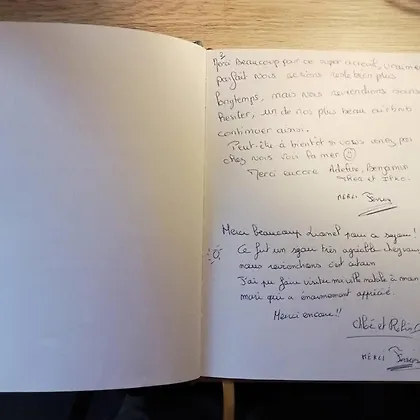 Merci Beaucoup pour ce super accueil, vraiment
parfait nous serions resté bien plus
longtemps, mais nous reviendrons sans
hésiter, un de nos plus beau
continuer ainsi.
Peut-être à bientôt si vous venez pas
chez nous voir la mer
Merci encore Adeline, Benjamin
Théo et
MERCI
Merci beaucoup Lionel pour ce séjour!
Ce fut un séjour très agréable chez vous
nous reviendrons c'est certain
J'ai pu faire visiter ma ville natale à mon
mari qui a énormément apprécié.
Merci encore!!
et Robin
MERCI